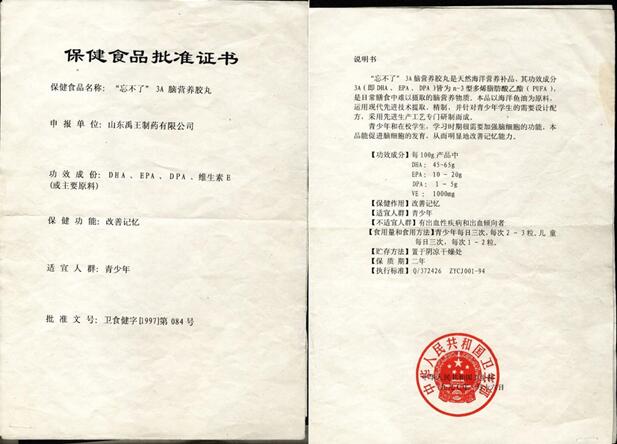 保健食品批准证书
保健食品名称：“忘不了”3A 脑营养胶丸
申 报 单 位：山东禹王制药有限公司
功 效 成 份：DHA、EPA、DPA、维生素E
(或主要原料)
保 健 功 能：改善记忆
适 宜 人 群：青少年
批 准 文 号：卫食健字[1997]第 084 号
说明书
“忘不了”3A脑营养胶丸是天然海洋营养补品，其功效成分
3A (即DHA、EPA、DPA)皆为n-3型多烯脂肪酸乙酯 (PUFA)，
是日常膳食中难以摄取的脑营养物质。本品以海洋鱼油为原料，
运用现代先进技术提取、精制，并针对青少年学生的需要设计配
方，采用先进生产工艺专门研制而成。
青少年和在校学生，学习时期很需要加强脑细胞的功能，本
品能促进脑细胞的发育，从而明显地改善记忆能力。
【功效成分】每100g产品中
DHA： 45-65g
EPA： 10 - 20g
DPA： 1 - 5g
VE： 1000mg
【保健作用】改善记忆
【适宜人群】青少年
【不适宜人群】有出血性疾病和出血倾向者
【食用量和食用方法】青少年每日三次，每次 2 - 3 粒，儿 童
每日三次，每次 1 - 2 粒。
【贮存方法】置于阴凉干燥处
【保 质 期】二年
【执行标准】Q/372426 ZYCJ001-94
中华人民共和国卫生部